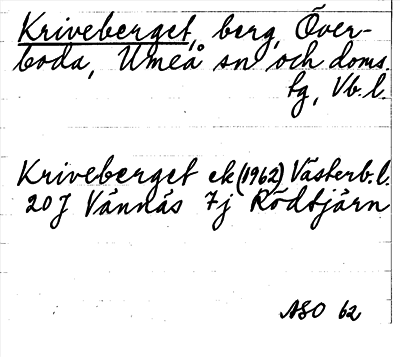 Kriveberget, berg, Över-
boda, Umeå sn och doms.
tg, Vb.l.
Kriveberget ek (1962) Västerb.l.
20J Vännäs 7j Rödtjärn
ASO 62